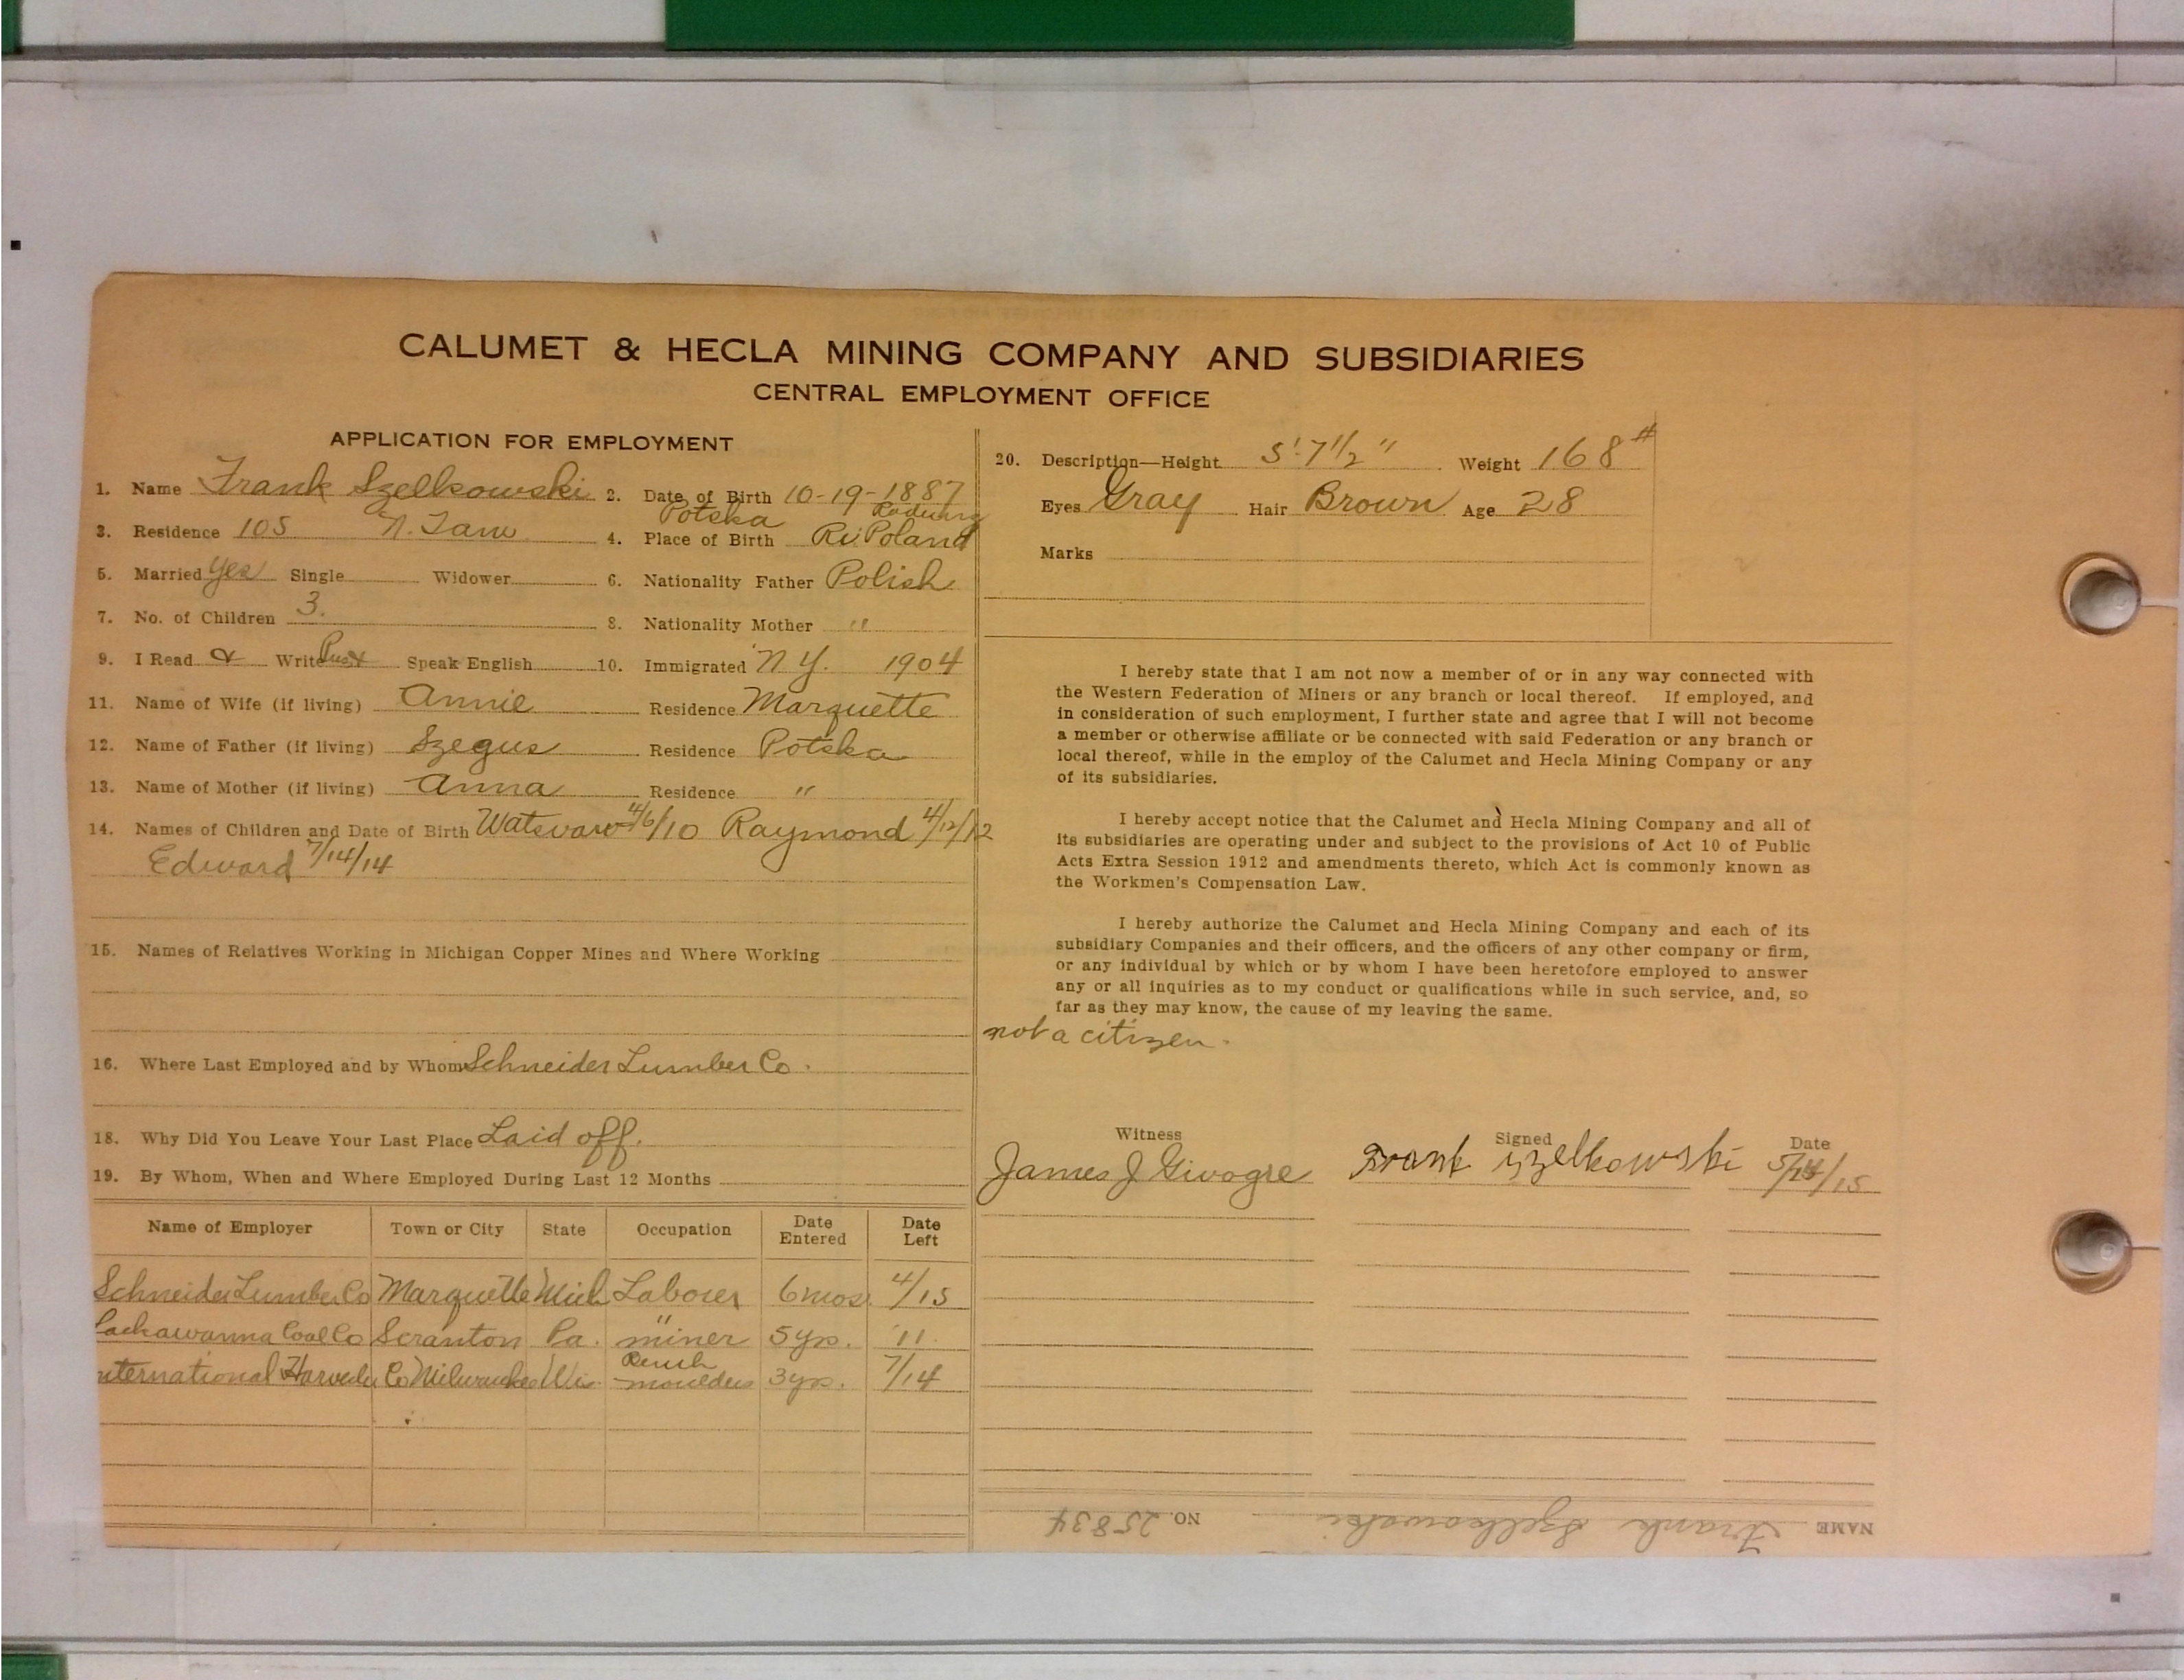 CALUMET & HECLA MINING COMPANY AND SUBSIDIARIES
CENTRAL EMPLOYMENT OFFICE
APPLICATION FOR EMPLOYMENT
1. Name Frank Szelkowski 2. Date of Birth 10-19-1887
Potska
3. Residence 105 4. Place of Birth Poland
5. Married Yes Single Widower 6. Nationality Father Polish
7. No. of Children 3. 8. Nationality Mother "
9. I Read & Write Speak English 10. Immigrated N.Y. 1904
11. Name of Wife (if living) Annie Residence Marquette
12. Name of Father (if living) Szegus Residence Potska
13. Name of Mother (if living) Anna Residence "
14. Names of Children and Date of Birth 4/6/10 Raymond 4/12/12
Edward 7/14/14
15. Names of Relatives Working in Michigan Copper Mines and Where Working
16. Where Last Employed and by Whom Schneider Lumber Co.
18. Why Did You Leave Your Last Place Laid off.
19. By Whom, When and Where Employed During Last 12 Months
Name of Employer Town or City State Occupation Date Entered Date Left
Schneider Lumber Co Marquette Mich Laborer 6 mos. 4/15
Lackawanna Coal Co Scranton Pa. " miner 5 yrs. '11
International Harvester Co Milwaukee Wis. moulder 3 yrs. 7/14
20. Description—Height 5' 7 1/2" Weight 168#
Eyes Gray Hair Brown Age 28
Marks
I hereby state that I am not now a member of or in any way connected with
the Western Federation of Miners or any branch or local thereof. If employed, and
in consideration of such employment, I further state and agree that I will not become
a member or otherwise affiliate or be connected with said Federation or any branch or
local thereof, while in the employ of the Calumet and Hecla Mining Company or any
of its subsidiaries.
I hereby accept notice that the Calumet and Hecla Mining Company and all of
its subsidiaries are operating under and subject to the provisions of Act 10 of Public
Acts Extra Session 1912 and amendments thereto, which Act is commonly known as
the Workmen's Compensation Law.
I hereby authorize the Calumet and Hecla Mining Company and each of its
subsidiary Companies and their officers, and the officers of any other company or firm,
or any individual by which or by whom I have been heretofore employed to answer
any or all inquiries as to my conduct or qualifications while in such service, and, so
far as they may know, the cause of my leaving the same.
not a citizen.
Witness Signed Date
James J Givogre Frank Szelkowski 5/14/15
NAME Frank Szelkowski NO. 25834